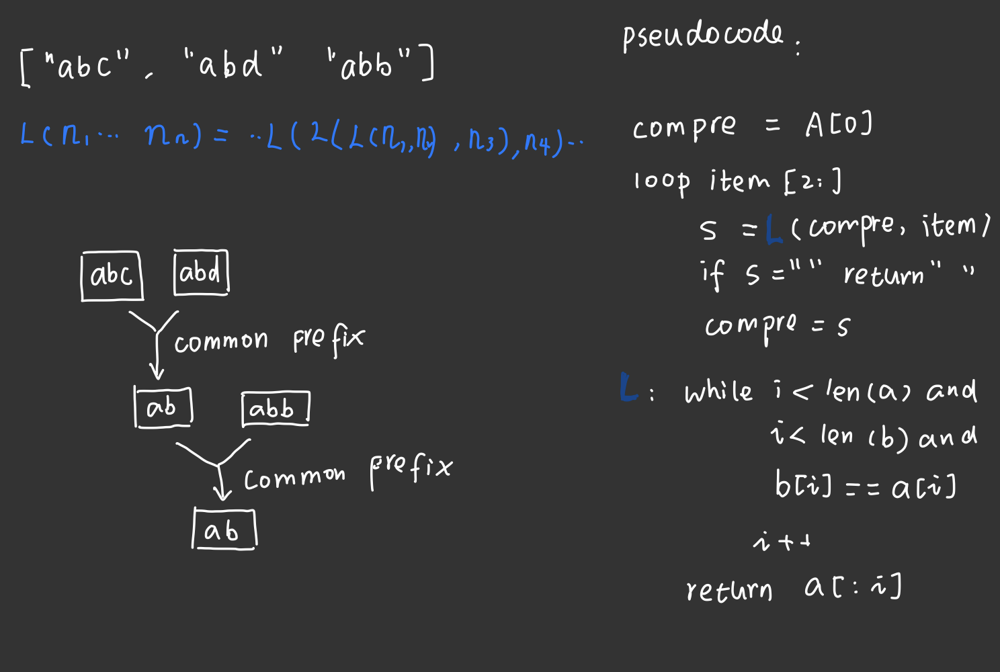 ["abc", "abd" "abb"]
L(n1... nn) = ..L(L(L(n1,n2), n3), n4)..
abc abd
common prefix
ab abb
common prefix
ab
pseudocode:
compre = A[0]
loop item [2:]
s = L(compre, item)
if s = "" return " "
compre = s
L: while i < len(a) and
i < len(b) and
b[i] == a[i]
i++
return a[:i]